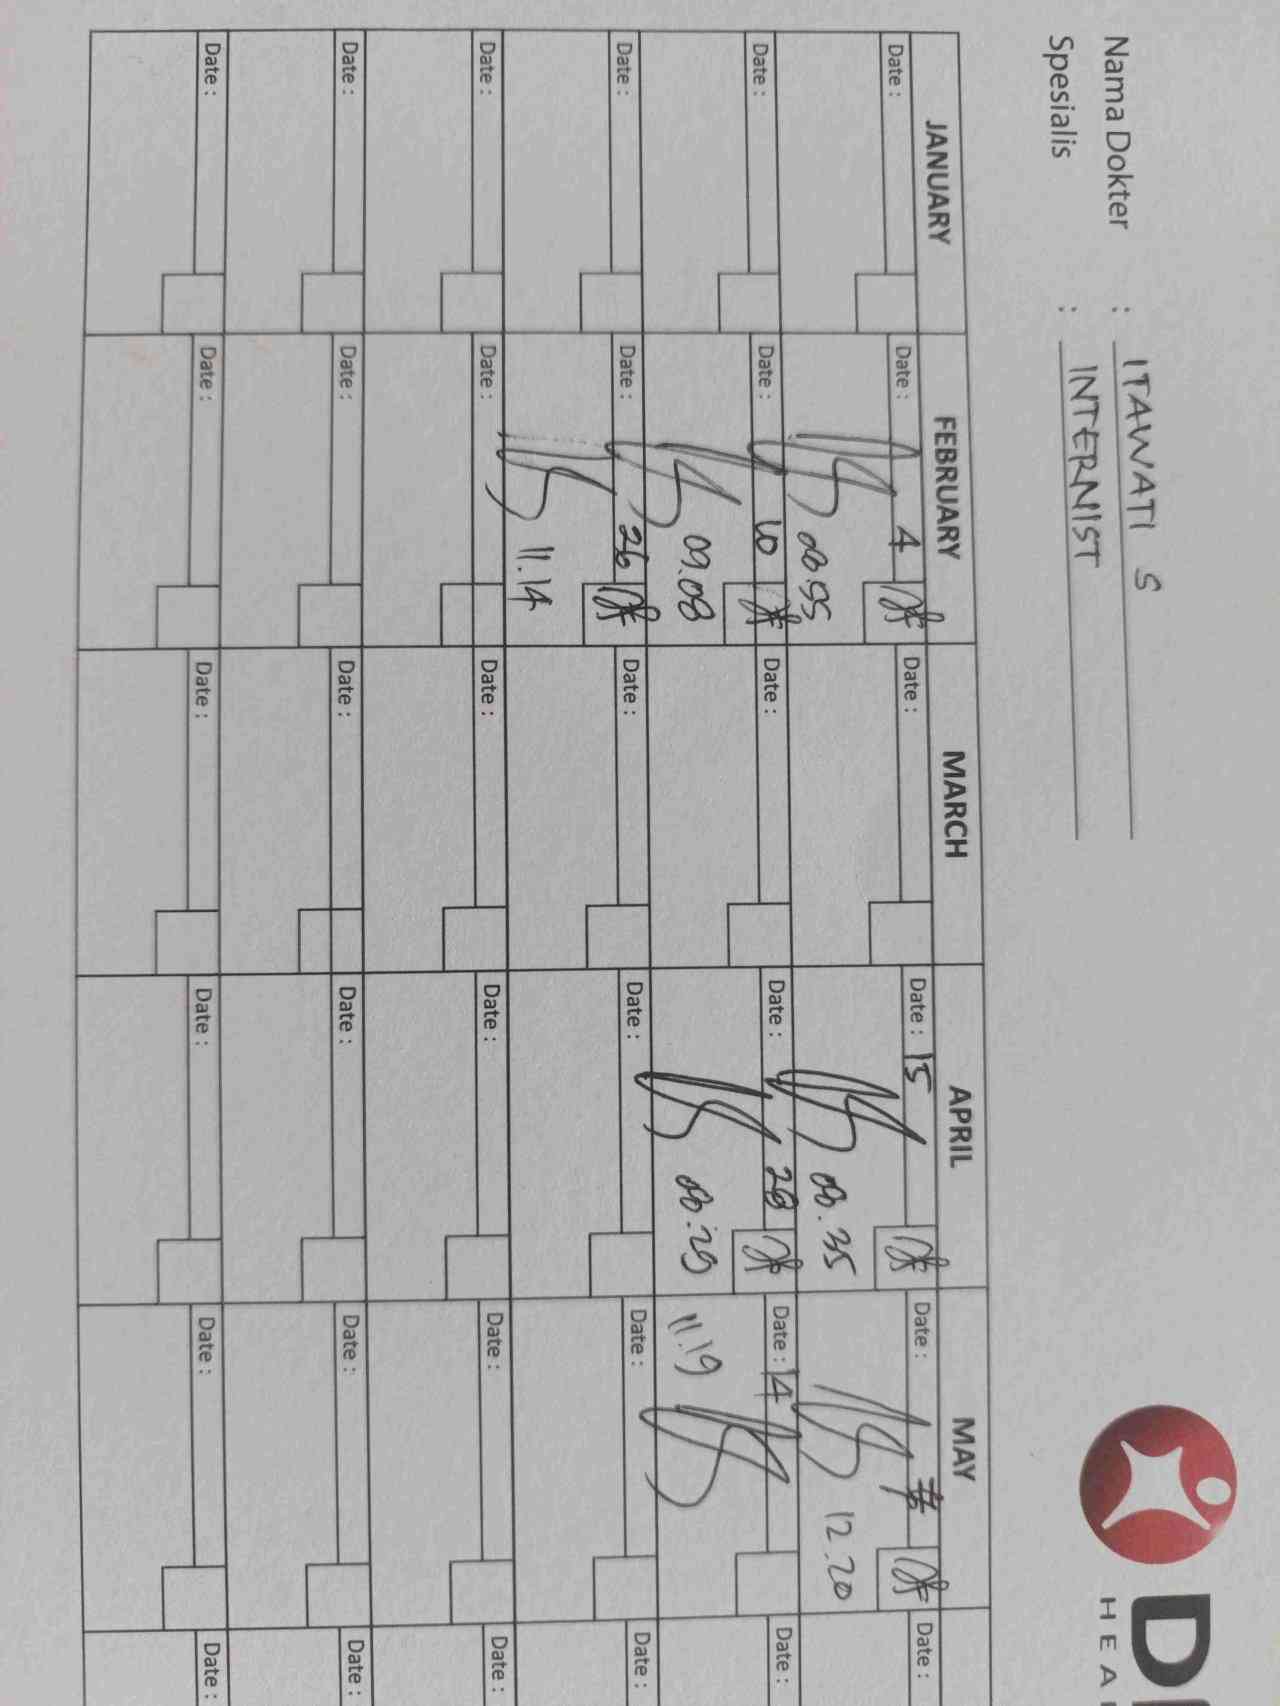 Nama Dokter : ITAWATI S
Spesialis : INTERNIST
HEA
JANUARY FEBRUARY MARCH APRIL MAY
Date : Date : 4 Date : Date : 15 Date : Date :
08.55 08.35 12.20
Date : Date : 10 Date : Date : 28 Date : 14 Date :
09.08 08.29 11.19
Date : Date : 26 Date : Date : Date : Date :
11.14
Date : Date : Date : Date : Date : Date :
Date : Date : Date : Date : Date : Date :
Date : Date : Date : Date : Date : Date :